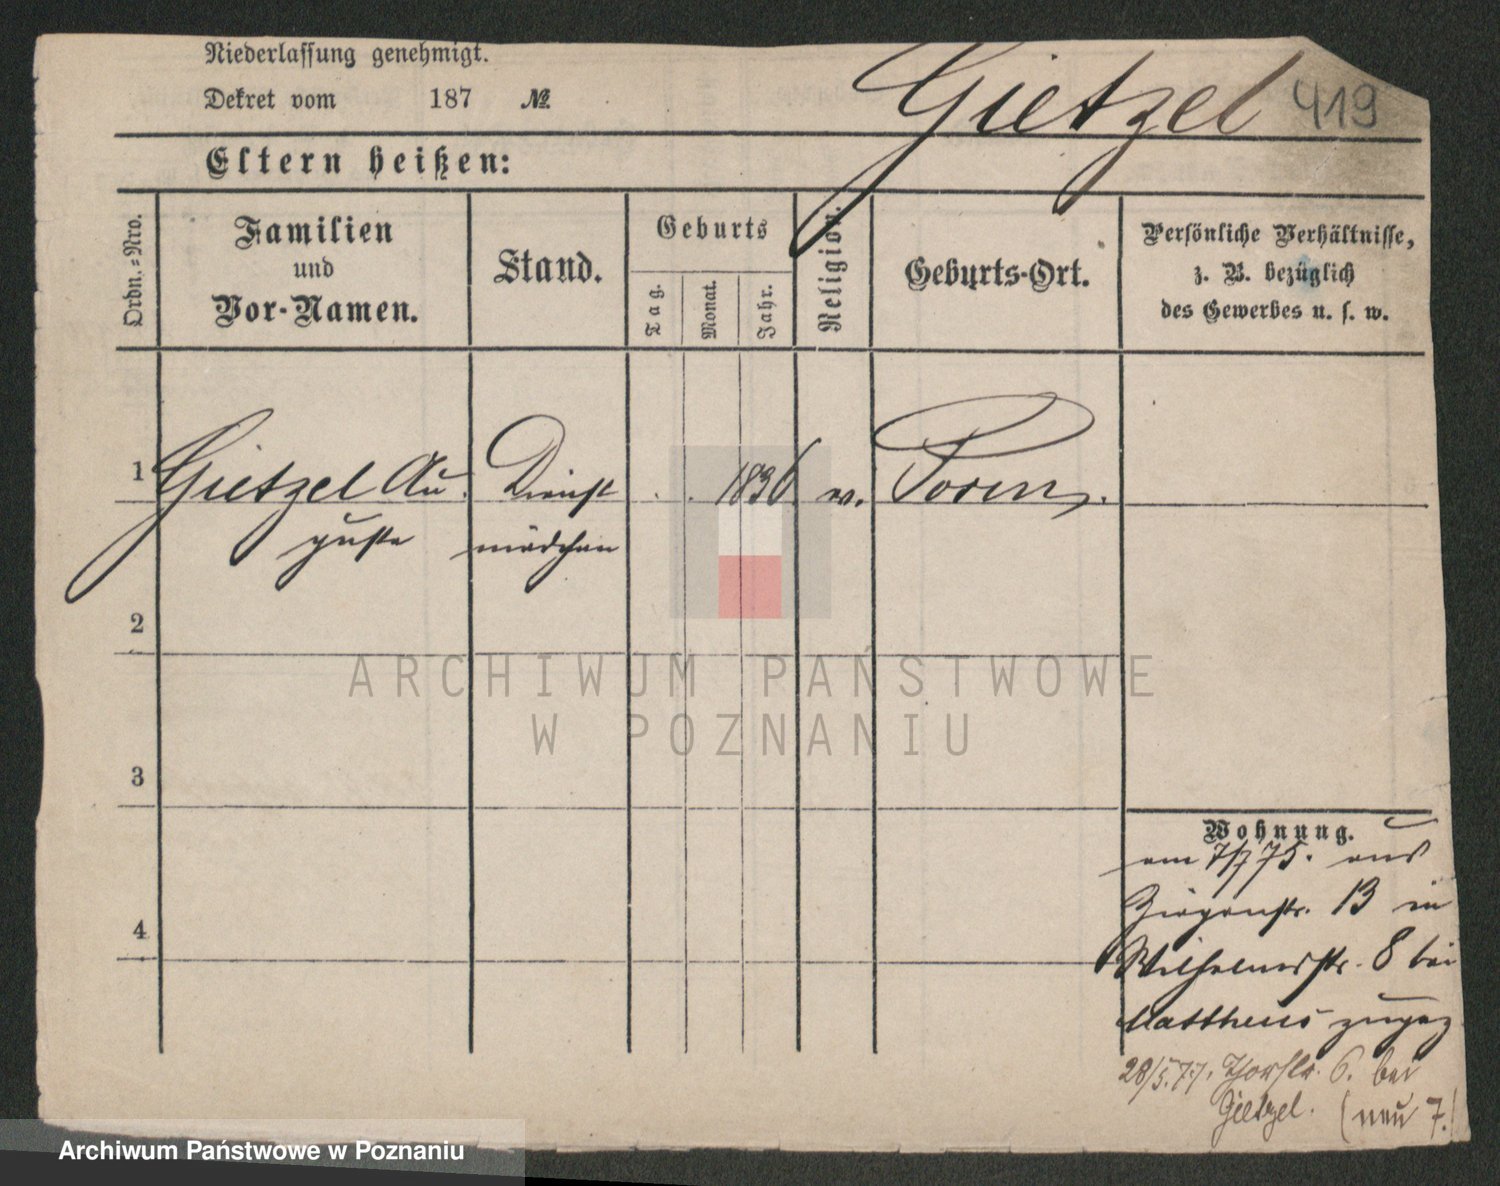 Niederlassung genehmigt.
Dekret vom 187 №
Gietzel 419
Eltern heißen:
Ordn.-Nro.
Familien
und
Vor-Namen.
Stand.
Geburts
Tag.
Monat.
Jahr.
Religion.
Geburts-Ort.
Persönliche Verhältnisse,
z. B. bezüglich
des Gewerbes u. s. w.
1 Gietzel Au- Dienst . . 1836 ev. Posen.
guste mädchen
2
3
4
Wohnung.
am 7/7 75. aus
Ziegenstr. 13 in
Wilhelmsstr. 8 bei
Mattheus zugez
28/5.77. Thorstr. 6. bei
Gietzel. (neu 7.)
ARCHIWUM PAŃSTWOWE
W POZNANIU
Archiwum Państwowe w Poznaniu